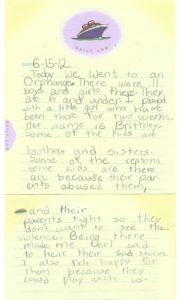 6-15-12
Today we went to an
Orphanage. There were 11
boys and girls there. They
are 6 and under. I played
with a little girl who have
been there for two weeks.
Her name is Britthey.
Some of the kids are
brothers and sisters.
Some of the reasons
some kids are there
are because their par-
ents abused them,
and their
parents fight so they
dont want to see the
violence. Being there
made me feel said
to hear their sad stories.
I also felt happy for
them because they
could play with us.